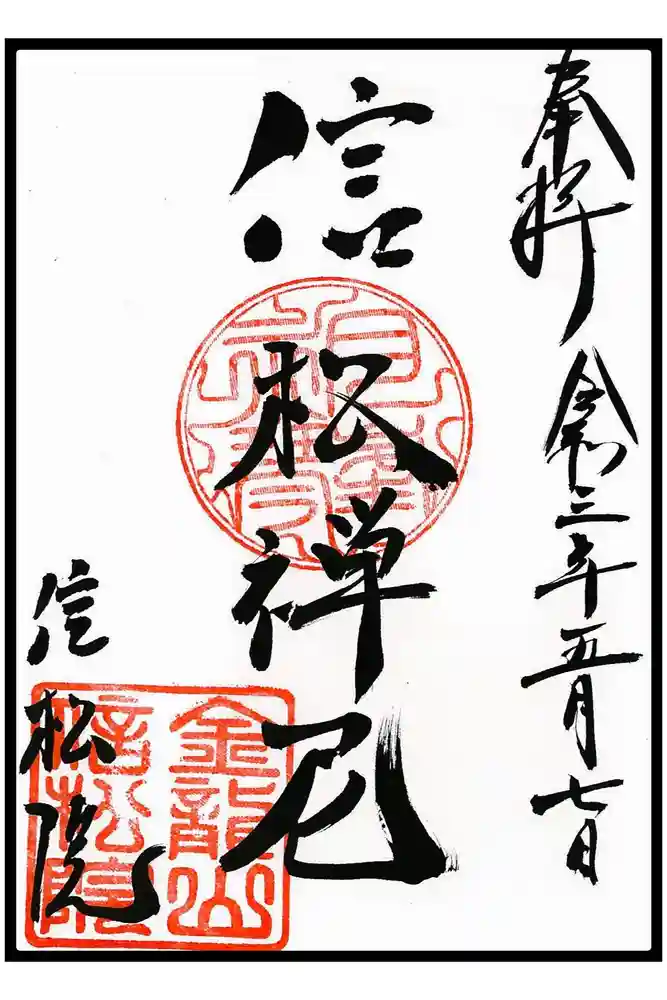 奉拝
令和三年五月七日
信松禅尼
信松院
金龍山
信松院